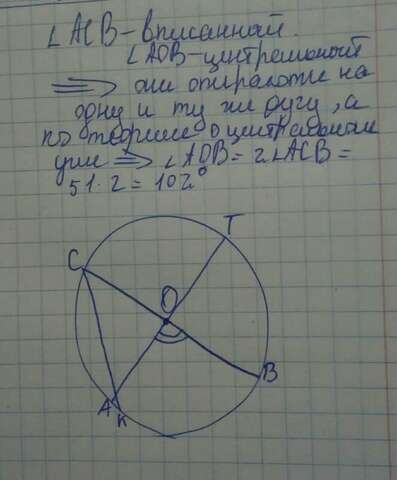 ∠ACB - вписанный.
∠AOB - центральный
⟹ они опираются на
одну и ту же дугу, а
по теореме о центральном
угле ⟹ ∠AOB = 2∠ACB =
51·2 = 102°
T
C
O
B
A
K